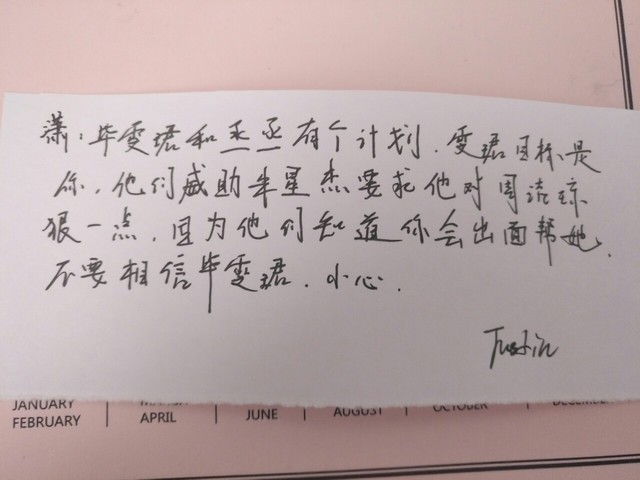 潇：毕雯珺和丞丞有个计划．雯珺目标是
你，他们威助半星杰要求他对周洁琼
狠一点，因为他们知道你会出面帮她．
不要相信毕雯珺．小心．
Justin
JANUARY
FEBRUARY
APRIL
JUNE
AUGUST
OCTOBER